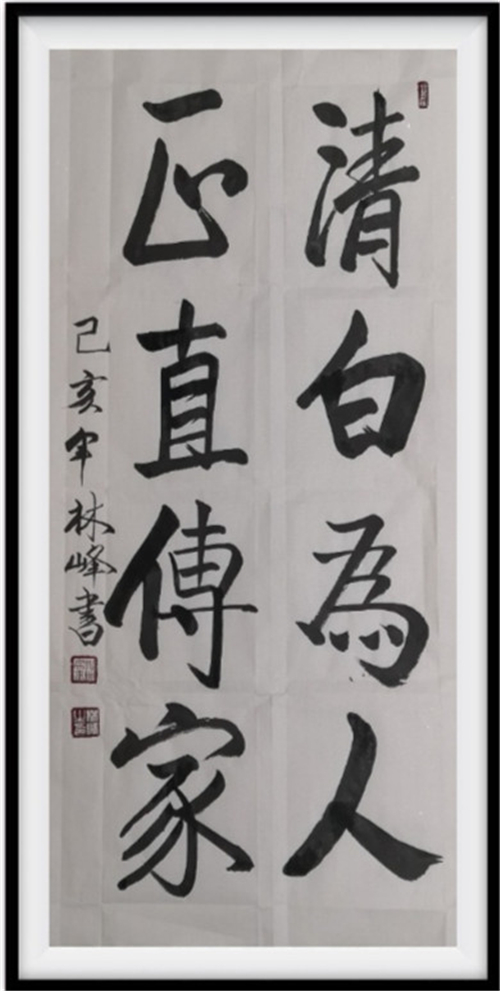 清白為人
正直傳家
己亥年林峰書